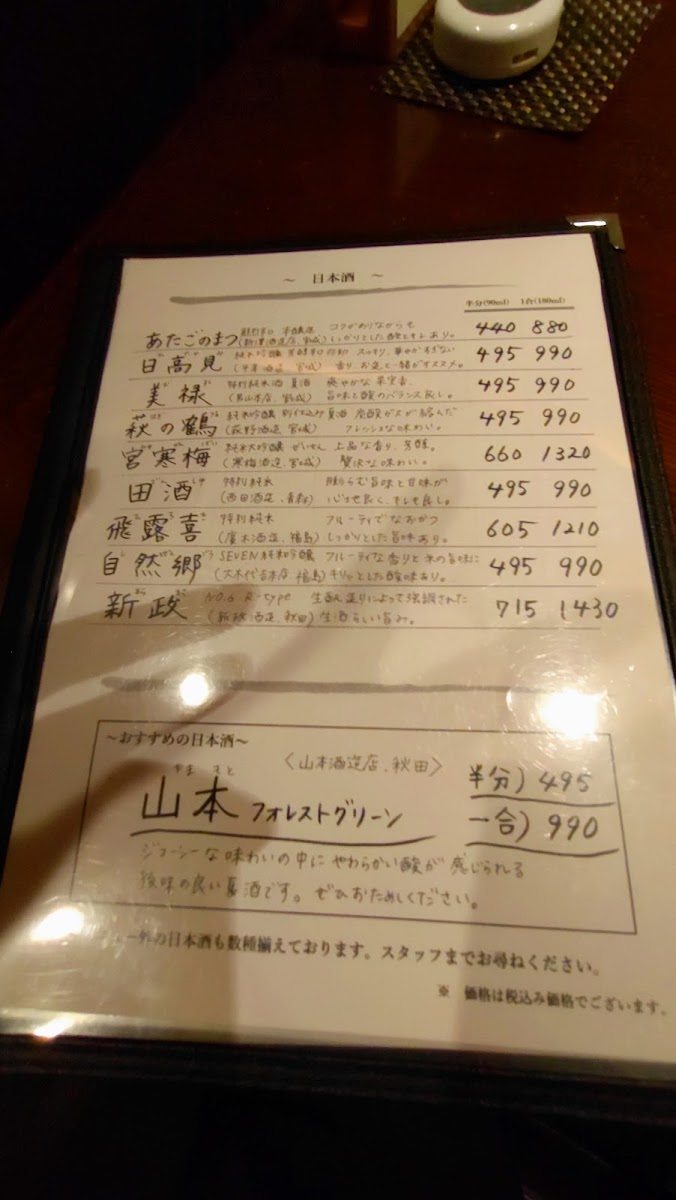 ～ 日本酒 ～
半分(90ml) 1合(180ml)
あたごのまつ 特別 本醸造 コクがありながらも 440 880
(新澤酒造店、宮城) しっかりとした酸とキレあり。
日高見 純米吟醸 スッキリ、華やかすぎない 495 990
(平孝酒造、宮城) 香り お魚と一緒がオススメ。
美禄 特別純米酒 夏酒 爽やかな果実香、 495 990
宮城) 旨味と酸のバランス良し。
萩の鶴 純米吟醸 別仕込み 夏酒 炭酸ガスが絡んだ 495 990
(萩野酒造、宮城) フレッシュな味わい。
宮寒梅 純米大吟醸 上品な香り、芳醇。 660 1320
(寒梅酒造、宮城) 贅沢な味わい。
田酒 特別純米 膨らむ旨味と甘味が 495 990
(西田酒造、青森) 心地良く、キレも良し。
飛露喜 特別純米 フルーティでなおかつ 605 1210
(廣木酒造、福島) しっかりとした旨味あり。
自然郷 SEVEN 純米吟醸 フルーツな香りと米の旨味に 495 990
(大木代吉本店、福島) キリッとした酸味あり。
新政 No.6 R-type 生酛造りによって強調された 715 1430
(新政酒造、秋田) 生酒らしい旨み。
～おすすめの日本酒～
〈山本酒造店、秋田〉
やま もと
山本 フォレストグリーン
半分) 495
一合) 990
ジューシーな味わいの中に やわらかい酸が 感じられる
後味の良い夏酒です。ぜひおためしください。
外の日本酒も数種揃えております。スタッフまでお尋ねください。
※ 価格は税込み価格でございます。